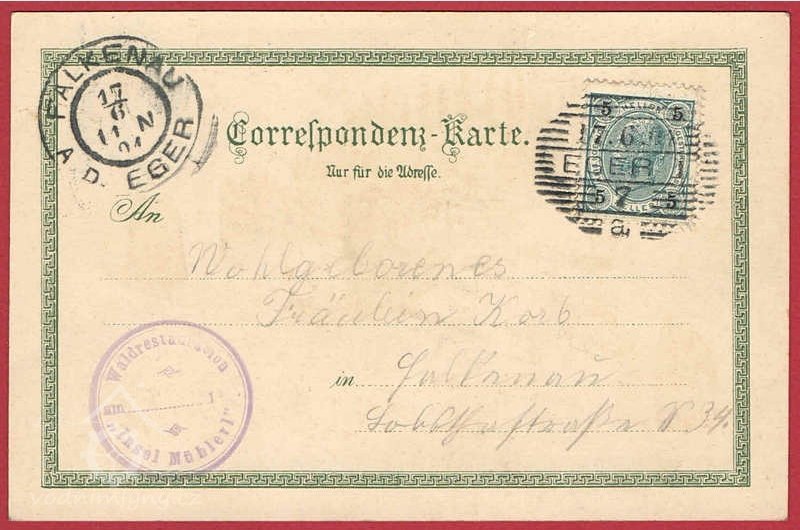 FALKENAU
17
6
11 N
04
A. D. EGER
Correspondenz-Karte.
Nur für die Adresse.
5 HELLER 5
5 HELLER 5
17.6.
EGER 1
7
a
An
Wohlgeborenes
Fräulein Korb
in Falkenau
N 34.
Waldrestauration
am 1
"Insel Mühlerl"
vodnimlyny.cz